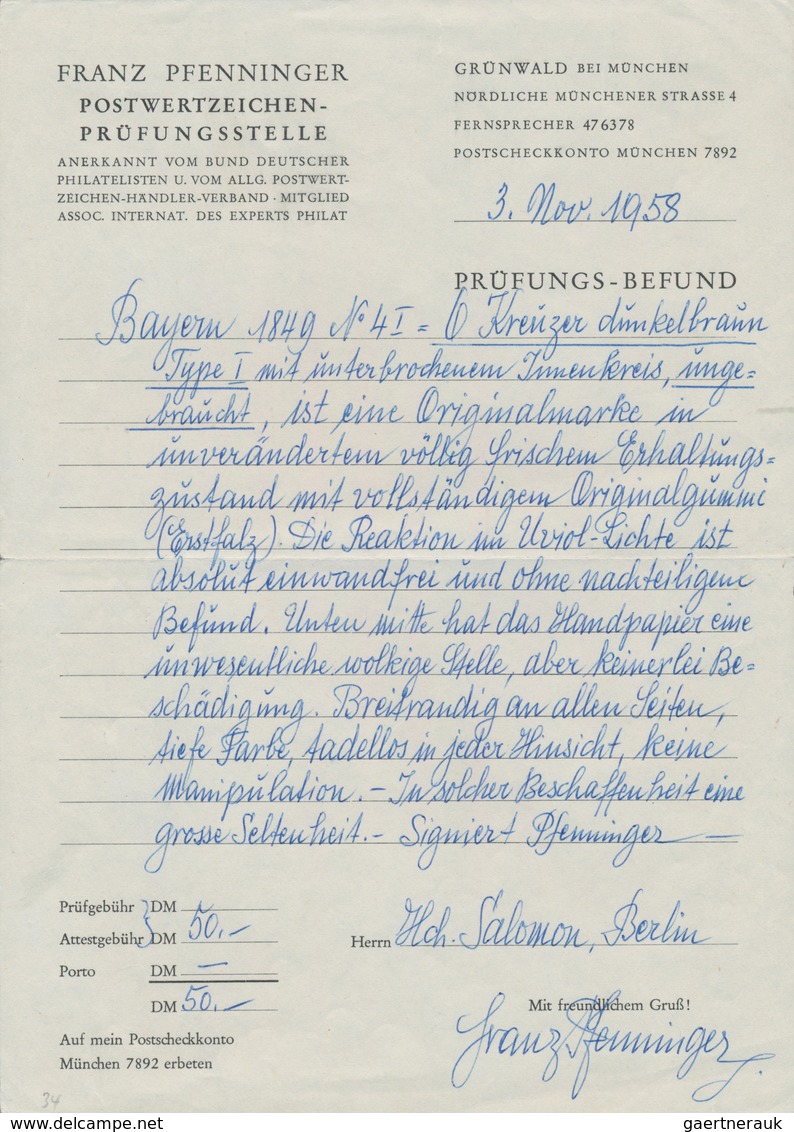 FRANZ PFENNINGER
POSTWERTZEICHEN-
PRÜFUNGSSTELLE
ANERKANNT VOM BUND DEUTSCHER
PHILATELISTEN U. VOM ALLG. POSTWERT-
ZEICHEN-HÄNDLER-VERBAND · MITGLIED
ASSOC. INTERNAT. DES EXPERTS PHILAT
GRÜNWALD BEI MÜNCHEN
NÖRDLICHE MÜNCHENER STRASSE 4
FERNSPRECHER 476378
POSTSCHECKKONTO MÜNCHEN 7892
3. Nov. 1958
PRÜFUNGS-BEFUND
Bayern 1849 No 4 I = 6 Kreuzer dunkelbraun
Type I mit unterbrochenem Innenkreis, unge=
braucht, ist eine Originalmarke in
unverändertem völlig frischem Erhaltungs=
zustand mit vollständigem Originalgummi
(Erstfalz). Die Reaktion im Uviol-Lichte ist
absolut einwandfrei und ohne nachteiligen
Befund. Unten mitte hat das Handpapier eine
unwesentliche wolkige Stelle, aber keinerlei Be=
schädigung. Breitrandig an allen Seiten,
tiefe Farbe, tadellos in jeder Hinsicht, keine
Manipulation. – In solcher Beschaffenheit eine
grosse Seltenheit. – Signiert Pfenninger —
Prüfgebühr } DM
Attestgebühr } DM 50.–
Porto DM —
DM 50.–
Auf mein Postscheckkonto
München 7892 erbeten
Herrn Hch. Salomon, Berlin
Mit freundlichem Gruß!
Franz Pfenninger
34
gaertnerauk